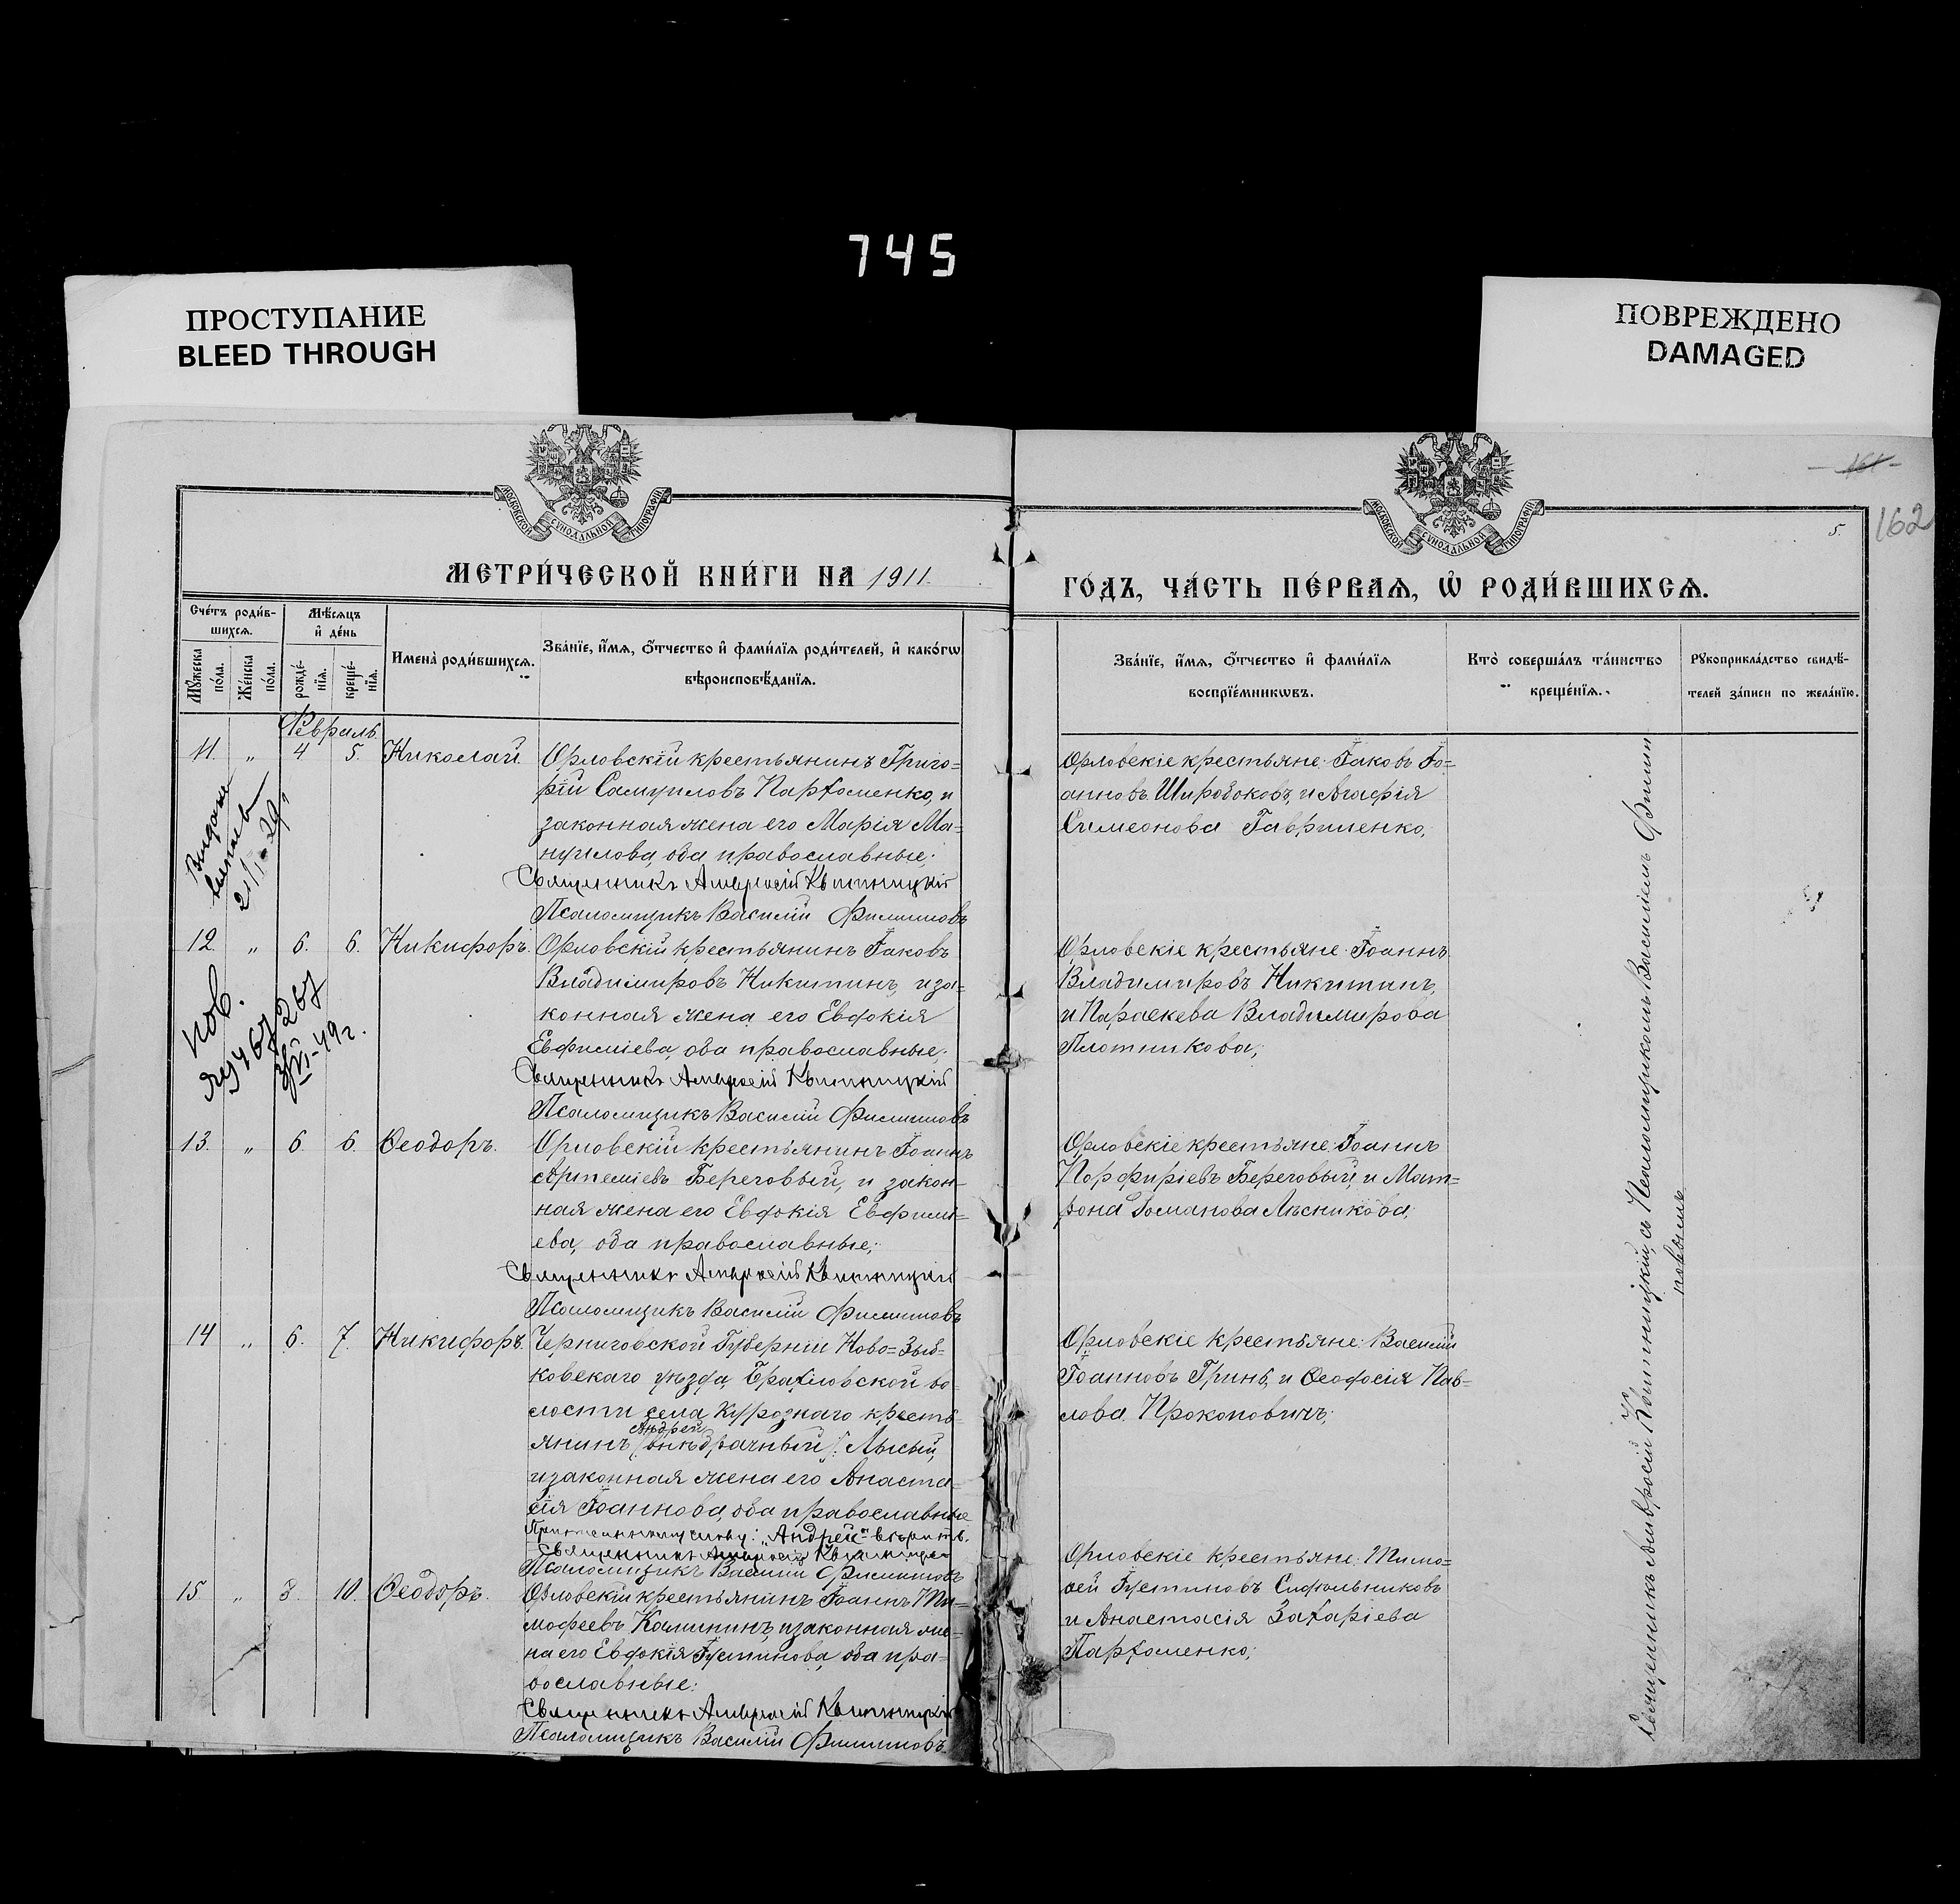 745
ПРОСТУПАНИЕ
BLEED THROUGH
ПОВРЕЖДЕНО
DAMAGED
МОСКОВСКОЙ СѴНОДАЛЬНОЙ ТИПОГРАФІИ
МОСКОВСКОЙ СѴНОДАЛЬНОЙ ТИПОГРАФІИ
161
162
5.
МЕТРИ́ЧЕСКОЙ КНИ́ГИ НА 1911.
ГО́ДЪ, ЧА́СТЬ ПЕ́РВАѦ, Ѡ҆ РОДИ́ВШИХСѦ.
Сче́тъ роди́в-
шихсѧ.
Мꙋ́жеска по́ла.
Же́нска по́ла.
Мѣ́сѧцъ
и҆ де́нь
рожде́-
нїѧ.
креще́-
нїѧ.
Имена̀ роди́вшихсѧ.
Зва́нїе, и҆́мѧ, ѻ҆́тчество и҆ фами́лїѧ роди́телей, и҆ како́гѡ
вѣроисповѣ́данїѧ.
Зва́нїе, и҆́мѧ, ѻ҆́тчество и҆ фами́лїѧ
воспрїе́мникѡвъ.
Кто̀ соверша́лъ та́инство
креще́нїѧ.
Рꙋкоприкла́дство свидѣ́-
телей за́писи по жела́нїю.
Февраль.
11. „ 4 5. Николай.
Орловскій крестьянинъ Григо=
рій Самуиловъ Пархоменко, и
законная жена его Марія Ма=
нуилова, оба православные;
Священникъ Амвросій Квитницкій
Псаломщикъ Василій Филиповъ
Орловскіе крестьяне: Іаковъ Іо=
анновъ Широбоковъ, и Агафія
Симеонова Гавриленко,
21/I-39 г
12. „ 6. 6. Никифоръ.
Орловскій крестьянинъ Іаковъ
Владиміровъ Никитинъ, и за=
конная жена его Евдокія
Евфиміева, оба православные;
Священникъ Амвросій Квитницкій
Псаломщикъ Василій Филиповъ
Орловскіе крестьяне: Іоаннъ
Владиміровъ Никитинъ,
и Параскева Владимірова
Плотникова;
пов.
3/VI-49 г.
13. „ 6 6. Ѳеодоръ.
Орловскій крестьянинъ Іоаннъ
Артеміевъ Береговый, и закон=
ная жена его Евдокія Евфимі=
ева, оба православные;
Священникъ Амвросій Квитницкій
Псаломщикъ Василій Филиповъ
Орловскіе крестьяне: Іоаннъ
Порфиріевъ Береговый, и Мат=
рона Романова Лѣсникова;
14 „ 6. 7. Никифоръ.
Черниговской Губерніи Ново=Зыб=
ковскаго уѣзда, Брахловской во=
лости села Курознаго кресть=
Андрей
янинъ (внѣбрачный) Лысый,
и законная жена его Анаста=
сія Іоаннова, оба православные
„Андрей"
Священникъ Амвросій
Псаломщикъ Василій Филиповъ
Орловскіе крестьяне: Василій
Іоанновъ Гринь, и Ѳеодосія Пав=
лова Прокоповичъ;
15. „ 8. 10. Ѳеодоръ.
Орловскій крестьянинъ Іоаннъ Ти=
мофеевъ Калининъ, и законная же=
на его Евдокія Іустинова, оба пра=
вославные:
Священникъ Амвросій Квитницкій
Псаломщикъ Василій Филиповъ
Орловскіе крестьяне: Тимо=
ѳей Іустиновъ
и Анастасія Захаріева
Пархоменко;
Священникъ Амвросій Квитницкій, съ Псаломщикомъ Василіемъ Филип
повымъ